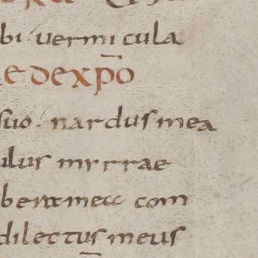 bi. vermicula
e de xp̄o
suo. nardus mea
ulus myrrae
bera mea com
dilectus meus